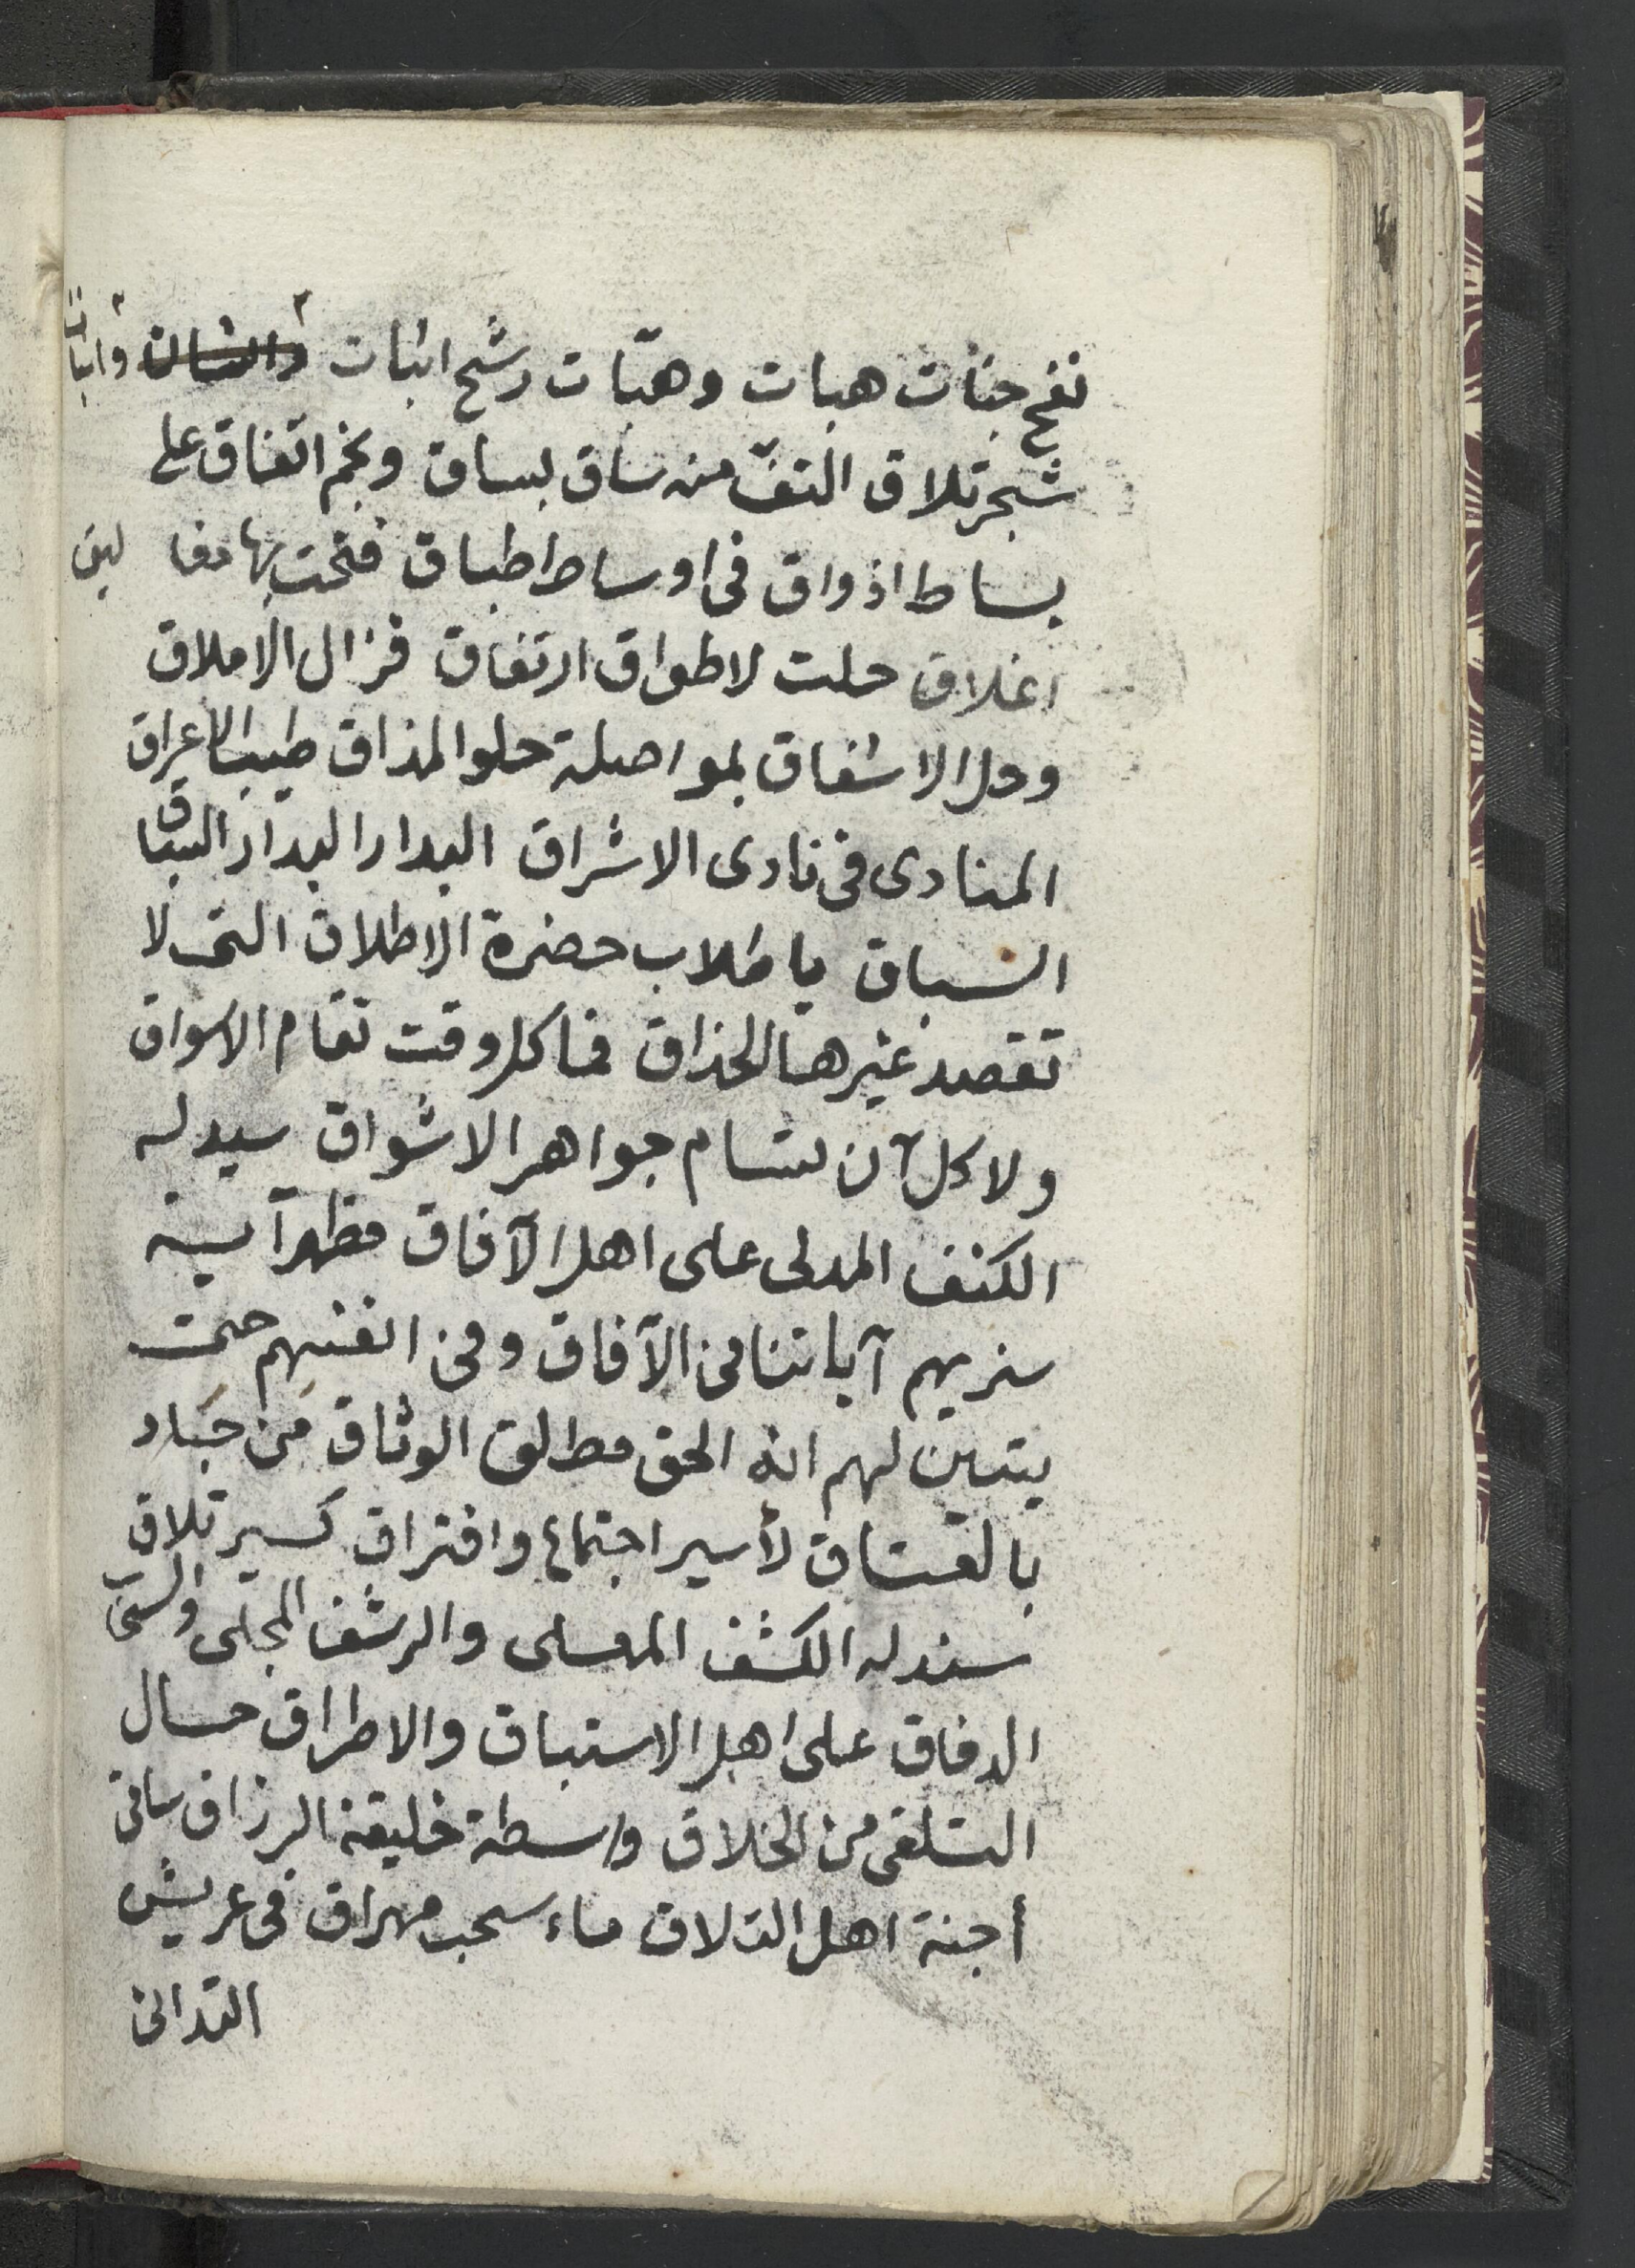 نفح جنات هبات وهبّات رشح اثبات واثبات
شجر تلاق التفّ منه ساق بساق ونجم اتفاق على
بساط اذواق فى اوساط اطباق فتحت بها مغا ليق
اغلاق حلت لاطواق ارتفاق فزال الاملاق
وحل الاشفاق بمواصلة حلو المذاق طيب الاعراق
المنادى فى نادى الاشراق البدار البدار السباق
السباق يا طلاب حضرة الاطلاق التى لا
تقصد غيرها الحذاق فما كل وقت تقام الاسواق
ولا كل آن تسام جواهر الاشواق سيد له
الكنف المدلى على اهل الآفاق مظهر آية
سنريهم آياتنا فى الآفاق وفى انفسهم حتى
يتبين لهم انه الحق مطلق الوثاق من جاد
بالعتاق لأسير اجتماع وافتراق كسير تلاق
سند له الكشف المعلى والرشف المجلى والسقى
الدفاق على اهل الاستباق والاطراق حال
التلقى من الخلاق واسطة خليقة الرزاق ساقى
أجنة اهل التلاق ماء سحب مهراق فى عريش
التدانى